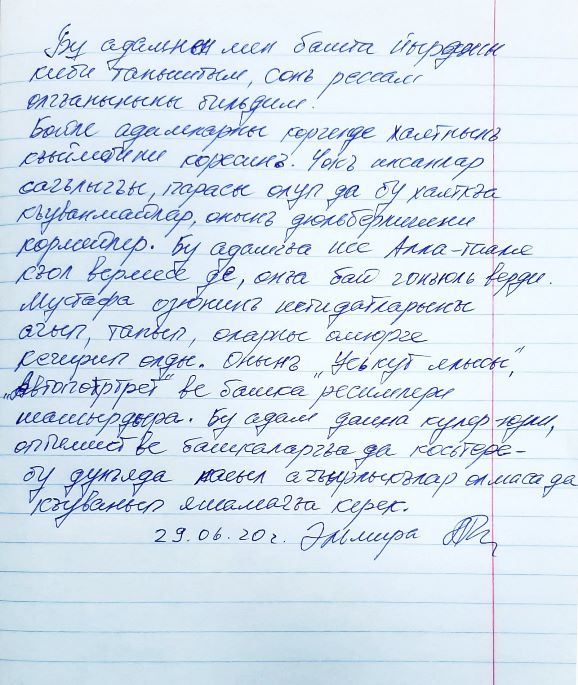 Бу адамнен мен башта йырджы
киби таныштым, сонъ рессам
олгъаныны бильдим.
Бойле адамларны коргенде хаятнынъ
къыйметини коресинъ. Чокъ инсанлар
сагълыгъы, парасы олуп да бу хаяткъа
къуванмайлар, онынъ дюльберлигини
кормейлер. Бу адамгъа исе Алла-Тааля
къол вермесе де, онъа бай гонъюль верди.
Мустафа озюнинъ истидатларыны
ачып, тапып, оларны омюрге
кечирип олды. Онынъ "Уськут ялысы",
"Автопортрет" ве башка ресимлери
шашырдыра. Бу адам даима кулер-юзлю,
оптимист ве башкаларгъа да косьтере-
бу дуньяда насыл агъырлыкълар олмаса да
къуванып яшамагъа керек.
29.06.20г. Эльмира